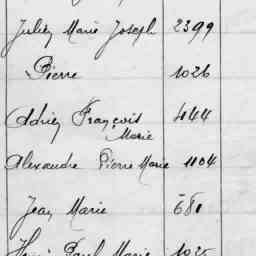 Julien Marie Joseph 2399
Pierre 1026
Adrien François Marie 444
Alexandre Pierre Marie 1104
Jean Marie 681
Henri Paul Marie 1025